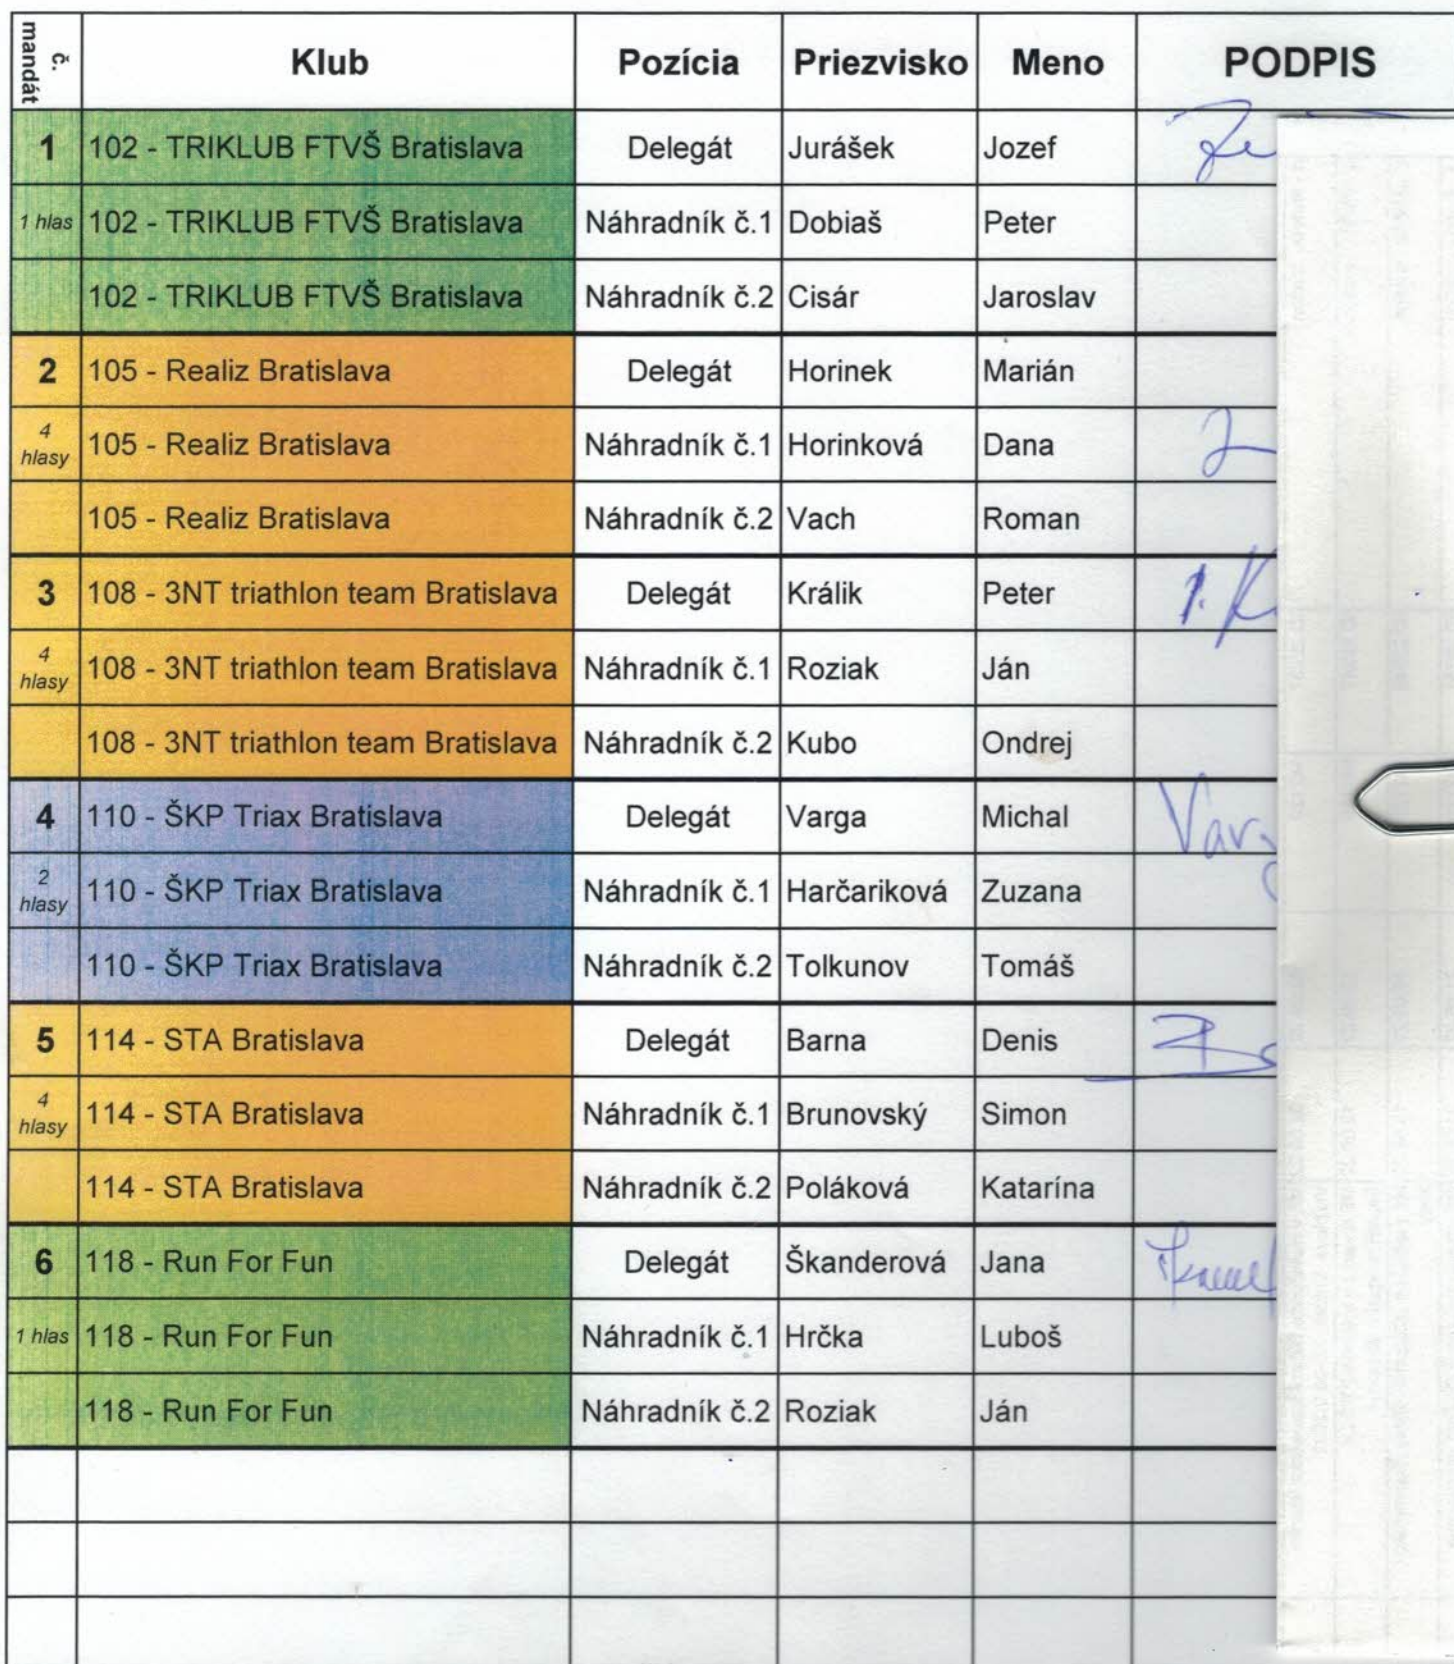 č. mandát Klub Pozícia Priezvisko Meno PODPIS
1 102 - TRIKLUB FTVŠ Bratislava Delegát Jurášek Jozef
1 hlas 102 - TRIKLUB FTVŠ Bratislava Náhradník č.1 Dobiaš Peter
102 - TRIKLUB FTVŠ Bratislava Náhradník č.2 Cisár Jaroslav
2 105 - Realiz Bratislava Delegát Horinek Marián
4 hlasy 105 - Realiz Bratislava Náhradník č.1 Horinková Dana
105 - Realiz Bratislava Náhradník č.2 Vach Roman
3 108 - 3NT triathlon team Bratislava Delegát Králik Peter
4 hlasy 108 - 3NT triathlon team Bratislava Náhradník č.1 Roziak Ján
108 - 3NT triathlon team Bratislava Náhradník č.2 Kubo Ondrej
4 110 - ŠKP Triax Bratislava Delegát Varga Michal
2 hlasy 110 - ŠKP Triax Bratislava Náhradník č.1 Harčariková Zuzana
110 - ŠKP Triax Bratislava Náhradník č.2 Tolkunov Tomáš
5 114 - STA Bratislava Delegát Barna Denis
4 hlasy 114 - STA Bratislava Náhradník č.1 Brunovský Simon
114 - STA Bratislava Náhradník č.2 Poláková Katarína
6 118 - Run For Fun Delegát Škanderová Jana
1 hlas 118 - Run For Fun Náhradník č.1 Hrčka Luboš
118 - Run For Fun Náhradník č.2 Roziak Ján